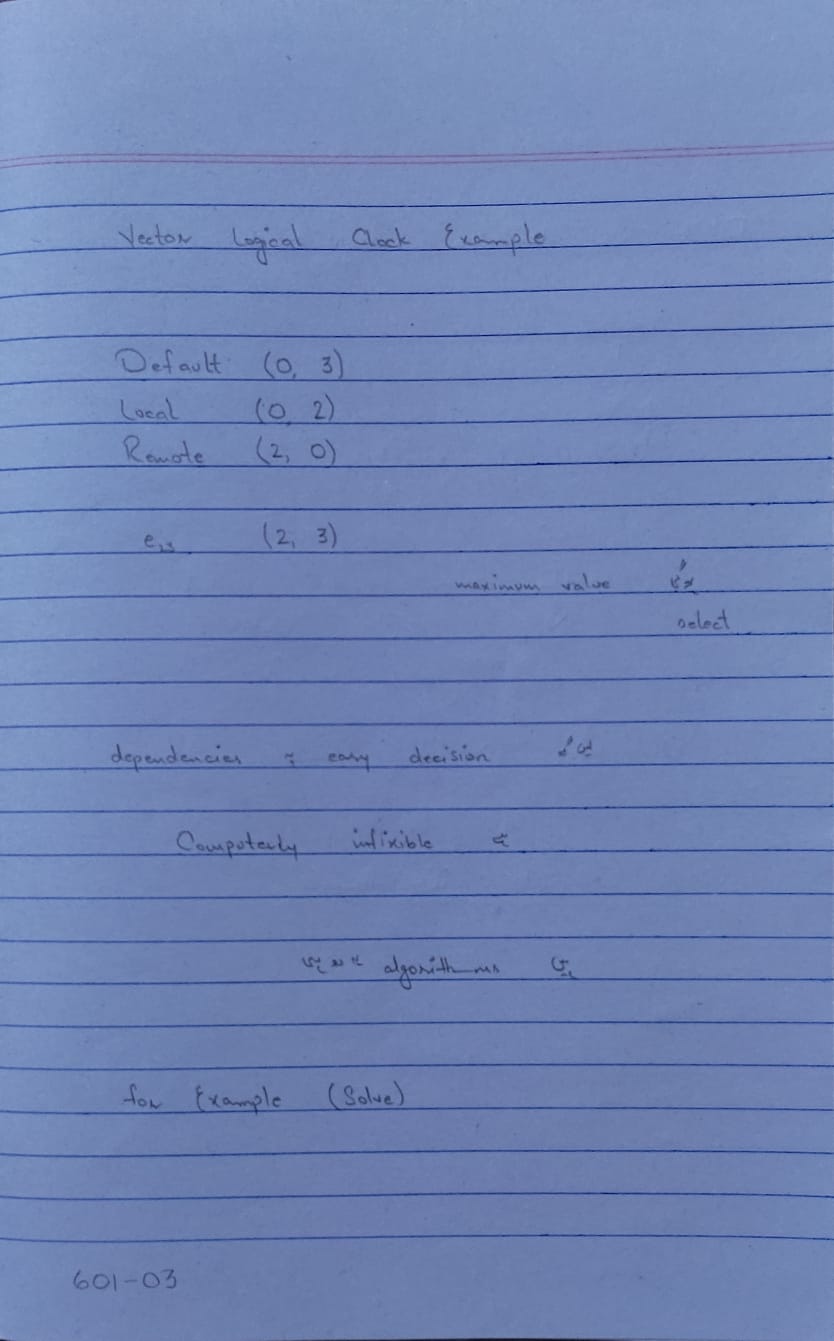 Vector Logical Clock Example
Default (0, 3)
Local (0, 2)
Remote (2, 0)
e₂₃ (2, 3)
maximum value
select
dependencies easy decision
Computerly infixible
algorithms
for Example (Solve)
601-03